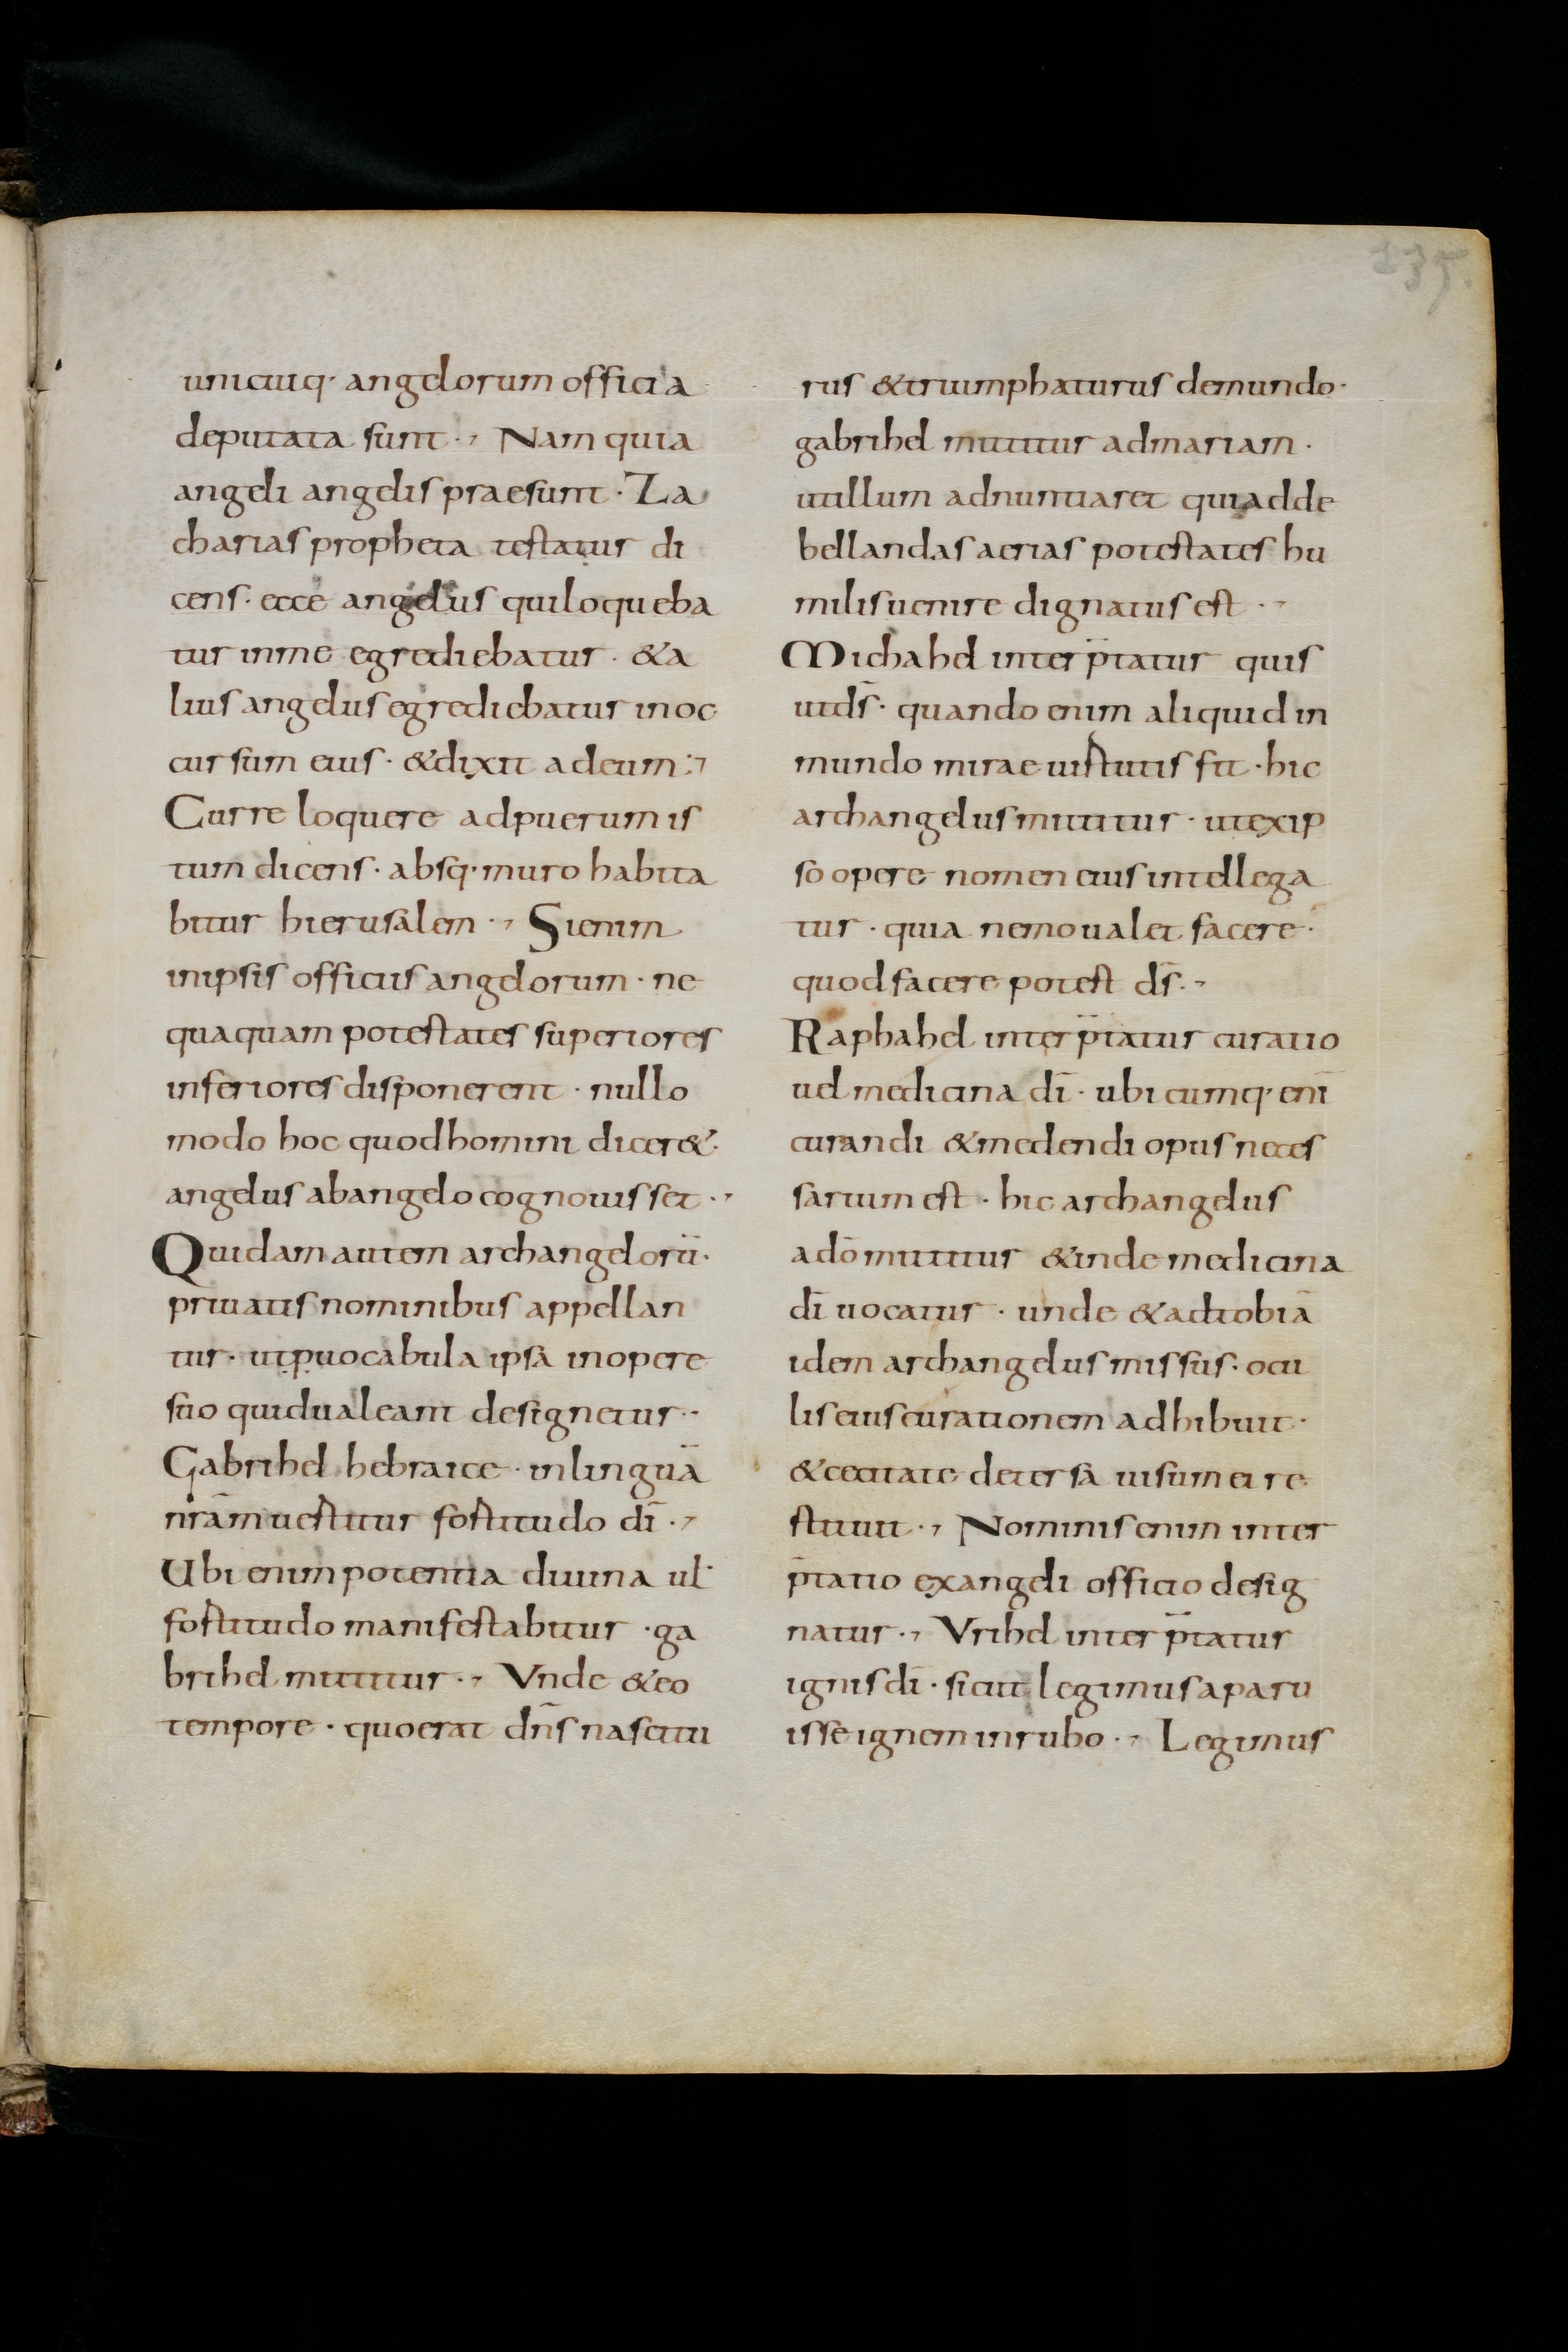 135.
unicuiq· angelorum officia
deputata sunt ·, Nam quia
angeli angelis praesunt · Za
charias propheta testatur di
cens · ecce angelus qui loqueba
tur in me egrediebatur · & a
lius angelus egrediebatur in oc
cursum eius · & dixit ad eum ·,
Curre loquere ad puerum is
tum dicens · absq· muro habita
bitur hierusalem ·, Si enim
in ipsis officiis angelorum · ne
quaquam potestates superiores
inferiores disponerent · nullo
modo hoc quod homini dicer&
angelus ab angelo cognouisset ·,
Quidam autem archangelorū ·
priuatis nominibus appellan
tur · ut p uocabula ipsa in opere
suo quid ualeant designetur ··
Gabrihel hebraice · in linguā
nr̄am uertitur fortitudo dī ·,
Ubi enim potentia diuina ul·
fortitudo manifestabitur · ga
brihel mittitur ·, Vnde & eo
tempore · quo erat dn̄s nascitu
rus & triumphaturus de mundo ·
gabrihel mittitur ad mariam ·
ut illum adnuntiaret qui adde
bellandas aerias potestates hu
milis uenire dignatus est ·,
Michahel inter p̄tatur quis
ut ds̄ · quando enim aliquid in
mundo mirae uirtutis fit · hic
archangelus mittitur · ut ex ip
so opere nomen eius intellega
tur · quia nemo ualet facere ·
quod facere potest ds̄ ·,
Raphahel inter p̄tatur curatio
uel medicina dī · ubi cumq· enī
curandi & medendi opus neces
sarium est · hic archangelus
a dō mittitur & inde medicina
dī uocatur · unde & ad tobiā
idem archangelus missus · ocu
lis eius curationem adhibuit ·
& cecitate detersa uisum ei re
stituit ·, Nominis enim inter
p̄tatio ex angeli officio desig
natur ·, Vrihel inter p̄tatur
ignis dī · sicut legimus aparu
isse ignem in rubo ·, Legimus